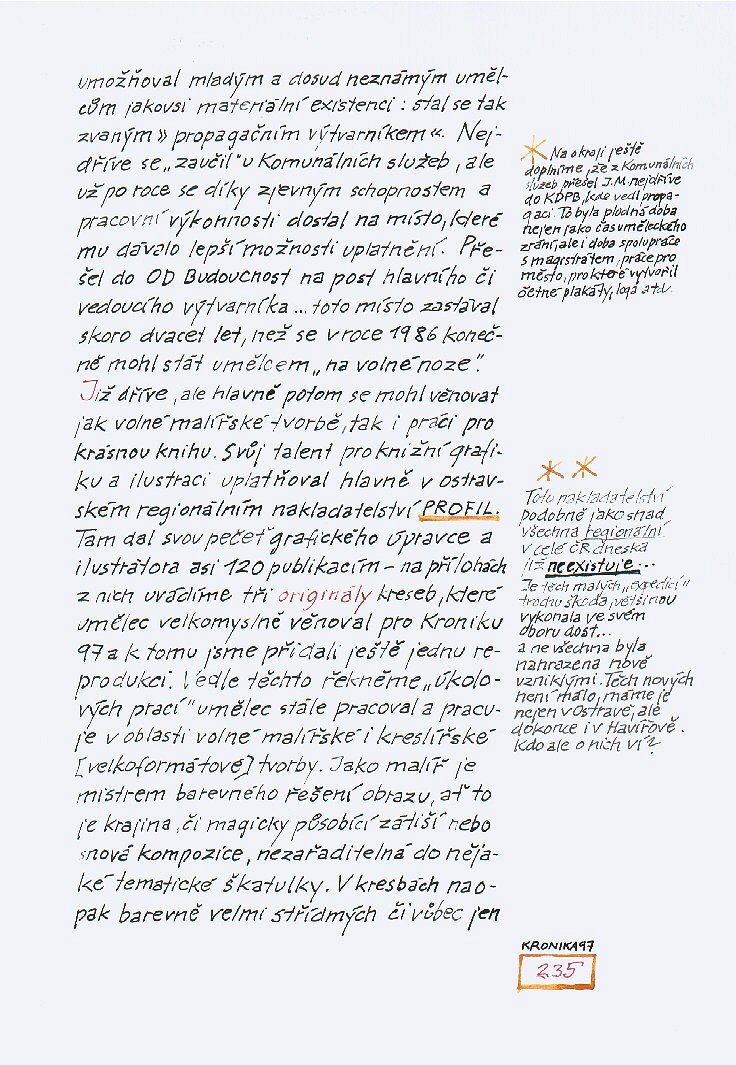 umožňoval mladým a dosud neznámým uměl-
cům jakousi materiální existenci : stal se tak
zvaným » propagačním výtvarníkem «. Nej-
dříve se „zaučil" u Komunálních služeb, ale
už po roce se díky zjevným schopnostem a
pracovní výkonnosti dostal na místo, které
mu dávalo lepší možnosti uplatnění. Pře-
šel do OD Budoucnost na post hlavního či
vedoucího výtvarníka ... toto místo zastával
skoro dvacet let, než se v roce 1986 koneč-
ně mohl stát umělcem „na volné noze".
Již dříve, ale hlavně potom se mohl věnovat
jak volné malířské tvorbě, tak i práci pro
krásnou knihu. Svůj talent pro knižní grafi-
ku a ilustraci uplatňoval hlavně v ostrav-
ském regionálním nakladatelství PROFIL.
Tam dal svou pečeť grafického úpravce a
ilustrátora asi 120 publikacím – na přílohách
z nich uvádíme tři originály kreseb, které
umělec velkomyslně věnoval pro Kroniku
97 a k tomu jsme přidali ještě jednu re-
produkci. Vedle těchto řekněme „úkolo-
vých prací" umělec stále pracoval a pracu-
je v oblasti volné malířské i kreslířské
[velkoformátové] tvorby. Jako malíř je
mistrem barevného řešení obrazu, ať to
je krajina, či magicky působící zátiší nebo
snová kompozice, nezařaditelná do něja-
ké tematické škatulky. V kresbách nao-
pak barevně velmi střídmých či vůbec jen
* Na okraji ještě
doplníme, že z Komunálních
služeb přešel J.M. nejdříve
do KDPB, kde vedl propa-
gaci. To byla plodná doba
nejen jako čas uměleckého
zrání, ale i doba spolupráce
s magistrátem, práce pro
město, pro které vytvořil
četné plakáty, loga atd.
* *
Toto nakladatelství
podobně jako snad
všechna regionální
v celé ČR dneska
již neexistuje...
Je těch malých „expedicí"
trochu škoda, většinou
vykonala ve svém
oboru dost...
a ne všechna byla
nahrazena nově
vzniklými. Těch nových
není málo, máme je
nejen v Ostravě, ale
dokonce i v Havířově.
Kdo ale o nich ví?
KRONIKA 97
235